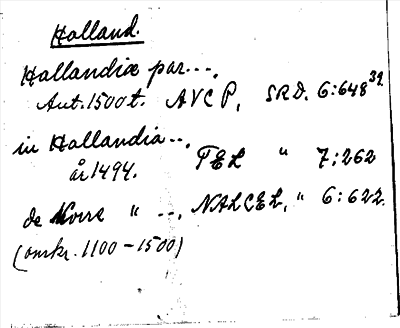 Holland.
Hollandiæ par---.
Ant. 1500t. AVCP, SRD. 6:648³²
in Hollandia--.
år 1494. TEL " 7:262
de " --, NALCEL, " 6:622.
(omkr. 1100-1500)